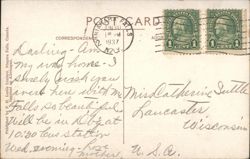 POST CARD
CORRESPONDENCE
FALLS
1937
1 1
Darling - Am on
my way home - I
surely wish you
were here with me
Falls so beautiful
Will be in
10:30 bus station
Wed. evening - Love
mother
Miss Catherine Tuttle
Lancaster
Wisconsin
U.S.A.